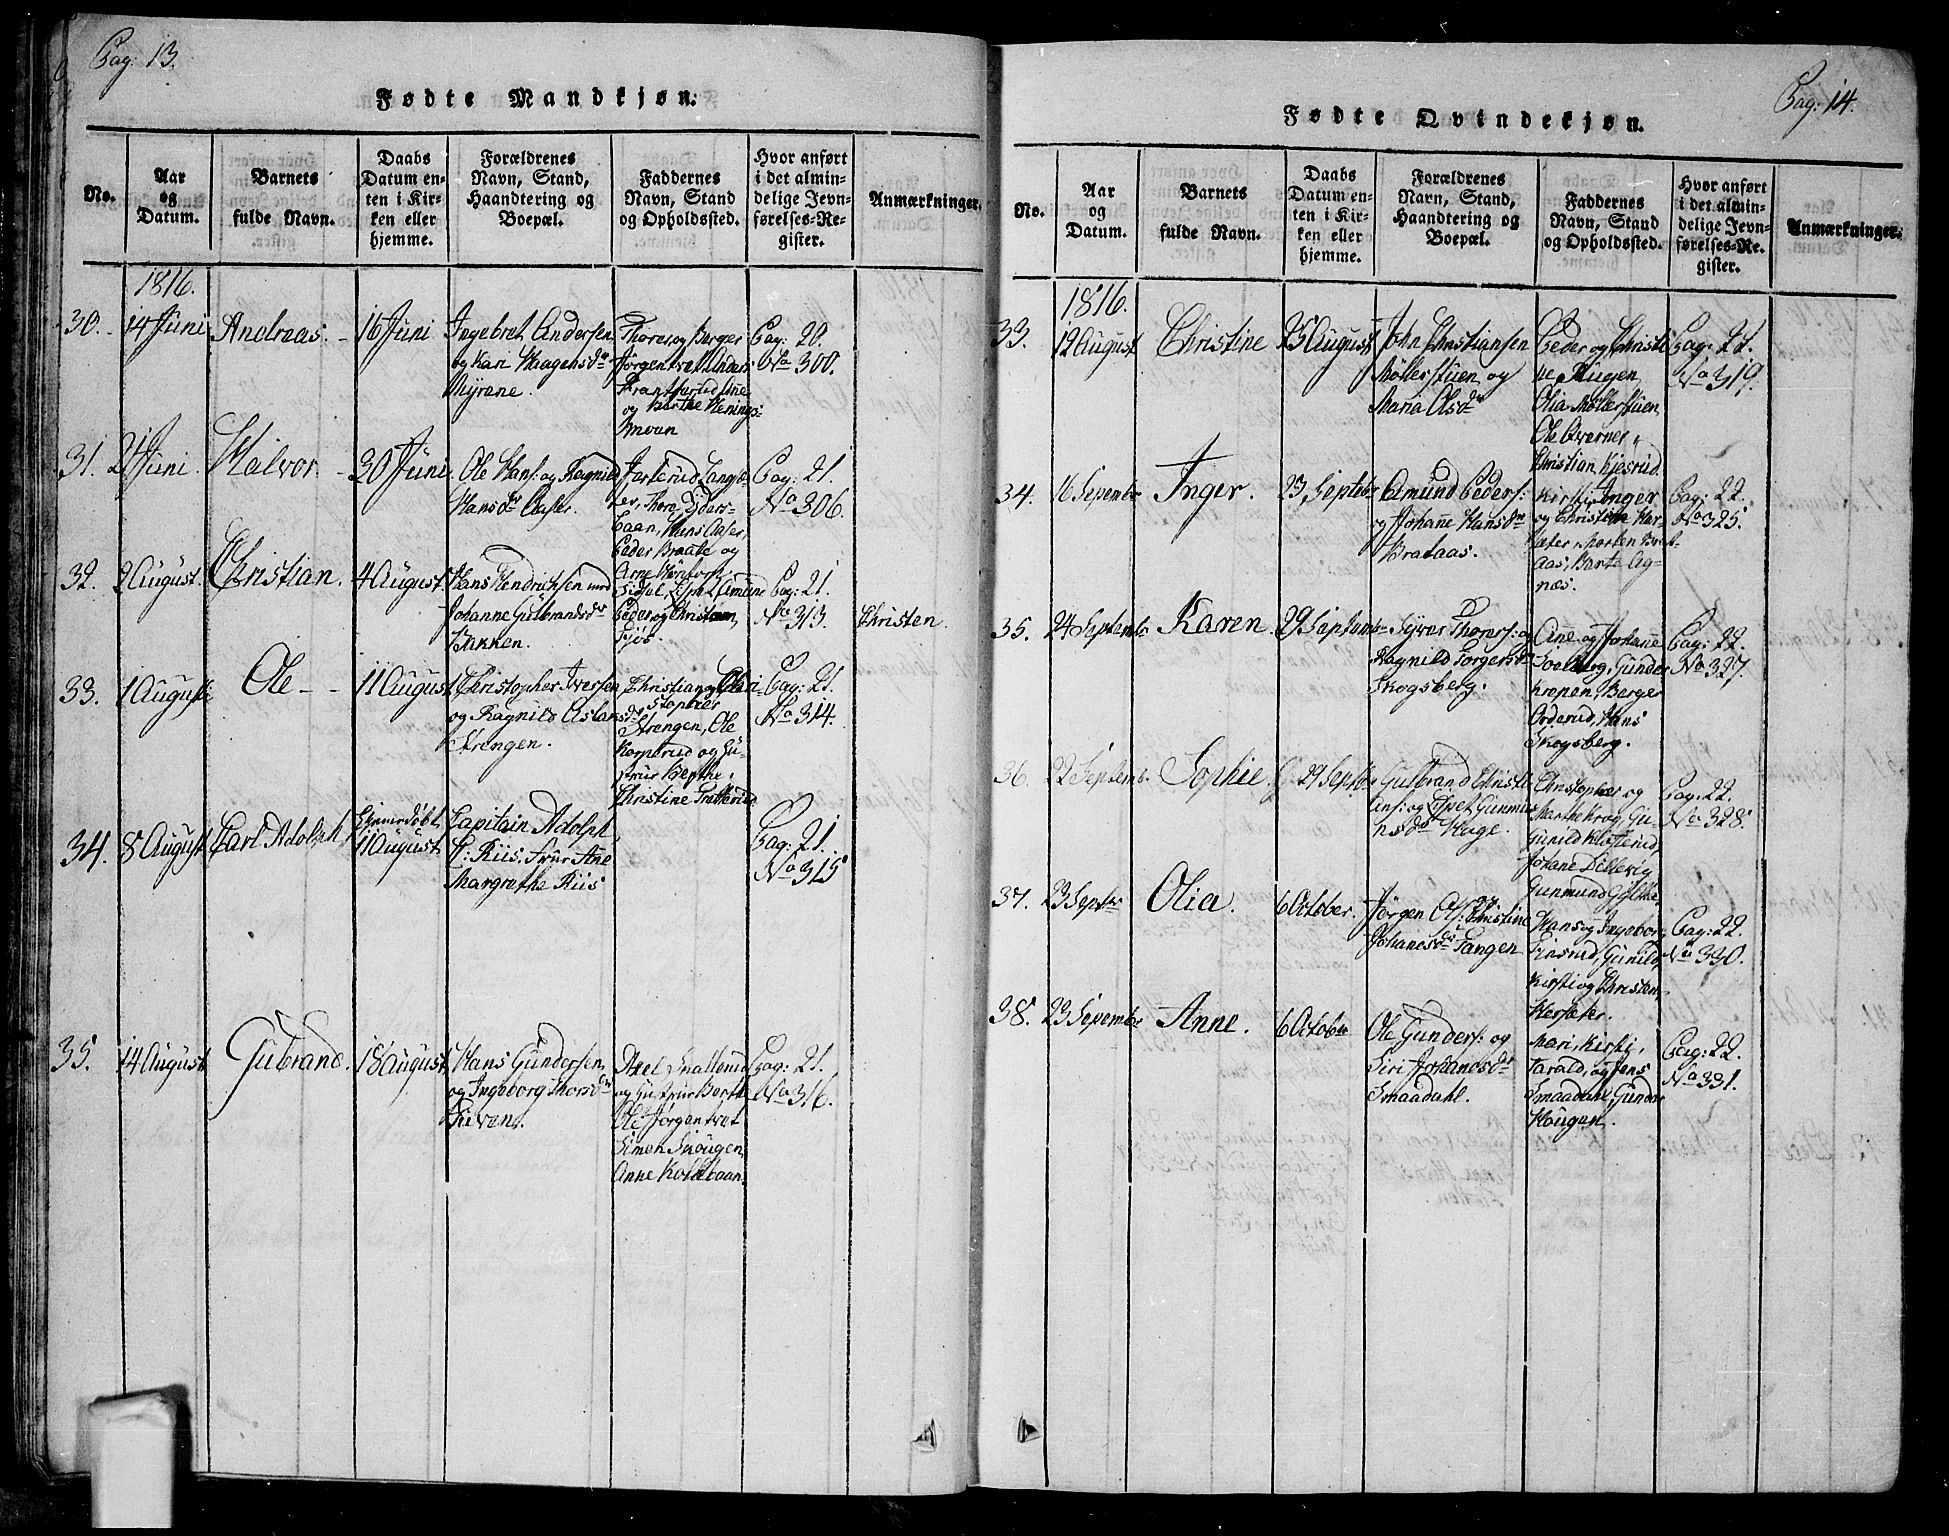 Pag: 13.
Fødte Mandkjøn:
No.
Aar
og
Datum.
Barnets
fulde Navn.
Daabs
Datum en-
ten i Kir-
ken eller
hjemme.
Forældrenes
Navn, Stand,
Haandtering og
Boepæl.
Faddernes
Navn, Stand
og Opholdssted.
Hvor anført
i det almin-
delige Jevn-
førelses-Re-
gister.
Anmærkninger.
1816.
30.
14 Juni
Andreas.
16 Juni
Ingebret Andersen
og Kari
Myrene.
Thorer og Berger
Pag: 20.
No 300.
31.
21 Juni
Halvor.
30 Juni
Ole Hans: og Ragnild
Hansdr Aaser.
Peder Braate og
Pag: 21.
No 306.
32.
2 August.
Christian.
4 August
Hans Hendrichsen med
Johanne Gulbrandsdr
Bakken.
Peder og Christian
Pag: 21.
No 313.
Christen.
33.
1 August
Ole
11 August
Christopher Iversen
og Ragnild
Strengen.
Strengen, Ole
Kornerud og
Christine
Pag: 21.
No 314.
34.
8 August
Carl Adolph
Hjemmedøbt
11 August
Capitain Adolph
Riis, Frue Ane
Margrethe Riis
Pag: 21.
No 315
35.
14 August
Gulbrand.
18 August
Hans Gundersen
og Ingeborg Thorsdr
Axel
Ole Jørgentvet
Simen
Anne
Pag: 21.
No 316.
Pag: 14.
Fødte Qvindekjøn.
No.
Aar
og
Datum.
Barnets
fulde Navn.
Daabs
Datum en-
ten i Kir-
ken eller
hjemme.
Forældrenes
Navn, Stand,
Haandtering og
Boepæl.
Faddernes
Navn, Stand
og Opholdssted.
Hvor anført
i det almin-
delige Jevn-
førelses-Re-
gister.
Anmærkninger.
1816.
33.
12 August
Christine
25 August
John Christiansen
Møllerstuen og
Maria Olsdr
Peder og Christi
ne Haugen,
Olia Møllerstuen,
Ole
Christian Kjesrud.
Pag: 21.
No 319.
34.
16 Sepembr
Inger.
23 Septebr
Amund Peders:
og Johanne Hansdr
Brataas.
Kirsti, Inger
og Christian
Morten Brat-
aas,
Pag: 22.
No 325.
35.
24 Septembr
Karen.
29 Septembr
Syver Thorers: og
Ragnild Torgersdr
Skogsberg.
Ane og Johanne
Solberg, Gunder
Krepen, Berger
Orderud, Hans
Skogsberg.
Pag: 22.
No 327.
36.
22 Septembr
Sophie.
29 Septbr
Gulbrand Christi
ans: og Lispet Gunmun
nsdr Hage.
Christopher og
Marthe Krog, Gu-
Gunild
Johane Dillevig
Gunmund
Pag: 22.
No 328.
37.
23 Septbr
Olia.
6 October.
Jørgen Ols: Christine
Johanesdr Tangen
Hans og Ingeborg
Gunild,
Kirsti og Christen
Pag: 22.
No 330.
38.
23 Sepembr
Anne.
6 October
Ole Gunders: og
Siri Johanesdr
Smaadahl.
Mari, Kirsti,
Tarald, og Jens
Smaadahl, Gunder
Haugen.
Pag: 22.
No 331.